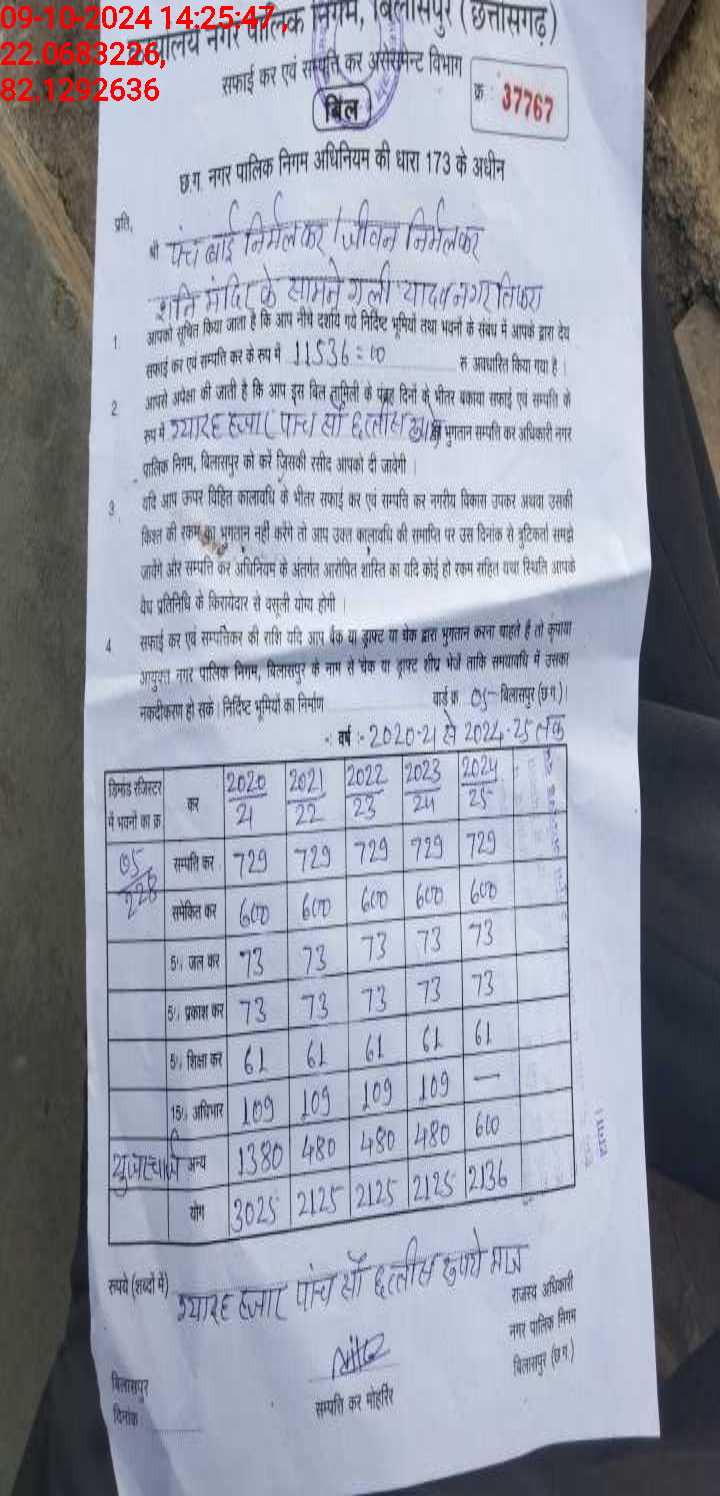 09-10-2024 14:25:47,
22.0683226,
82.1292636
नगर पालिक निगम, बिलासपुर (छत्तीसगढ़)
सफाई कर एवं सम्पत्ति कर असेसमेन्ट विभाग
बिल
क्र 37767
छ.ग. नगर पालिक निगम अधिनियम की धारा 173 के अधीन
प्रति,
श्री पंच बाई निर्मलकर / जीवन निर्मलकर
शनि मंदिर के सामने गली यादव नगर तिफरा
1 आपको सूचित किया जाता है कि आप नीचे दर्शाये गये निर्दिष्ट भूमियों तथा भवनों के संबध में आपके द्वारा देय
सफाई कर एवं सम्पत्ति कर के रूप में 11536=00 रू अवधारित किया गया है |
2 आपसे अपेक्षा की जाती है कि आप इस बिल तामिली के पंद्रह दिनों के भीतर बकाया सफाई एवं सम्पत्ति के
रूप में ग्यारह हजार पांच सौ छत्तीस रूपये भुगतान सम्पति कर अधिकारी नगर
पालिक निगम, बिलासपुर को करें जिसकी रसीद आपको दी जावेगी |
3 यदि आप ऊपर विहित कालावधि के भीतर सफाई कर एवं सम्पत्ति कर नगरीय विकास उपकर अथवा उसकी
किश्त की रकम का भुगतान नही करेंगे तो आप उक्त कालावधि की समाप्ति पर उस दिनांक से त्रुटिकर्ता समझे
जावेंगे और सम्पत्ति कर अधिनियम के अंतर्गत आरोपित शास्ति का यदि कोई हो रकम सहित यथा स्थिति आपके
वैध प्रतिनिधि के किरायेदार से वसूली योग्य होगी |
4 सफाई कर एवं सम्पत्तिकर की राशि यदि आप बैंक या ड्राफ्ट या चेक द्वारा भुगतान करना चाहते हैं तो कृपया
आयुक्त नगर पालिक निगम, बिलासपुर के नाम से चेक या ड्राफ्ट शीघ्र भेजें ताकि समयावधि में उसका
नकदीकरण हो सके | निर्दिष्ट भूमियों का निर्माण वार्ड क्र 05 बिलासपुर (छ.ग.) |
वर्ष :- 2020-21 से 2024-25 तक
डिमांड रजिस्टर में भवनों का क्र कर 2020/21 2021/22 2022/23 2023/24 2024/25
05/228 सम्पत्ति कर 729 729 729 729 729
समेकित कर 600 600 600 600 600
5% जल कर 73 73 73 73 73
5% प्रकाश कर 73 73 73 73 73
5% शिक्षा कर 61 61 61 61 61
15% अधिभार 109 109 109 109 —
यूजरचार्ज अन्य 1380 480 480 480 600
योग 3025 2125 2125 2125 2136
रूपये (शब्दों में) ग्यारह हजार पांच सौ छत्तीस रुपये मात्र
राजस्व अधिकारी
नगर पालिक निगम
बिलासपुर (छ.ग.)
सम्पत्ति कर मोहर्रिर
बिलासपुर
दिनांक